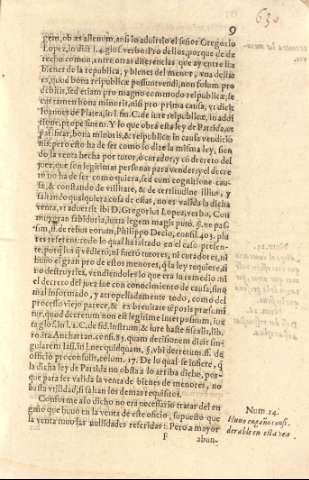 630
9
gem, ob æs alienum, ansi lo aduirtio el señor Gregorio
Lopez, in dict. l. 4. glos. verbo. Pro dellos, porque de de
recho comun, entre otras diferencias que ay entre los
bienes de la republica, y bienes del menor, vna dellas
es, quod bona reipublicæ possunt vendi, non solum pro
debitis, sed etiam pro magno commodo reipublicæ, se
cus tamen bona minoris, nisi pro prima causa, vt dicit
Ioannes de Platea, in l. fin. C. de iure reipublicæ, lo addi
Y lo que obra esta ley de Partida, es
bona minoris, & reipublicæ in causa venditio
nis: pero esto ha de ser como lo dize la misma ley, sien
do la venta hecha por tutor, o curador, y cõ decreto del
juez, que son legitimas personas para vender, y el decre
to no ha de ser como quiera, sed cum cognitione cau-
sæ, & constando de vtilitate, & de certitudine illius, y
faltando qualquiera cosa de estas, no es valida la dicha
venta, vt aduertit ibi D. Gregorius Lopez, verbo, Con
muy gran sabiduria, iuxta legem magis puto. §. ne pas-
sim, ff. de rebus eorum, Philippo Decio, consil. 403. pla
res referent: todo lo qual ha faltado en el caso presen-
te, porq los q vendierõ, ni fuerõ tutores, ni curadores, ni
huuo el gran pro de estos menores, q la ley requiere, si
no destruyrles, vendiendoles lo que era la remedio: ni
el decreto del juez fue con conocimiento de causa, sino
mal informado, y atropelladamente todo, como del
processo viejo parece, & ex breuitate tẽporis præsumi-
tur, quod decretum non est legitime interpositum, iux
ta glos. in l. 2. C. de fid. instrum. & iure hastæ fiscalis, lib.
10. ita Ancharran. consi. 83. quam decisionem dicit sin-
gularem Iass. in l. nec quidquam, §. vbi decretum. ff. de
officio proconsulis, colum. 17. De lo qual se infiere, q
la dicha ley de Partida no obsta a lo arriba dicho, por-
que para ser valida la venta de bienes de menores, no
basta vtilidad, si faltan los demas requisitos.
Conforme a lo dicho no era necessario tratar del en
gaño que huuo en la venta de este oficio, supuesto que
la venta tuuo las nulidades referidas: Pero a mayor
F
abun-
Num 14.
Huuo engaño consi
derable en esta ven